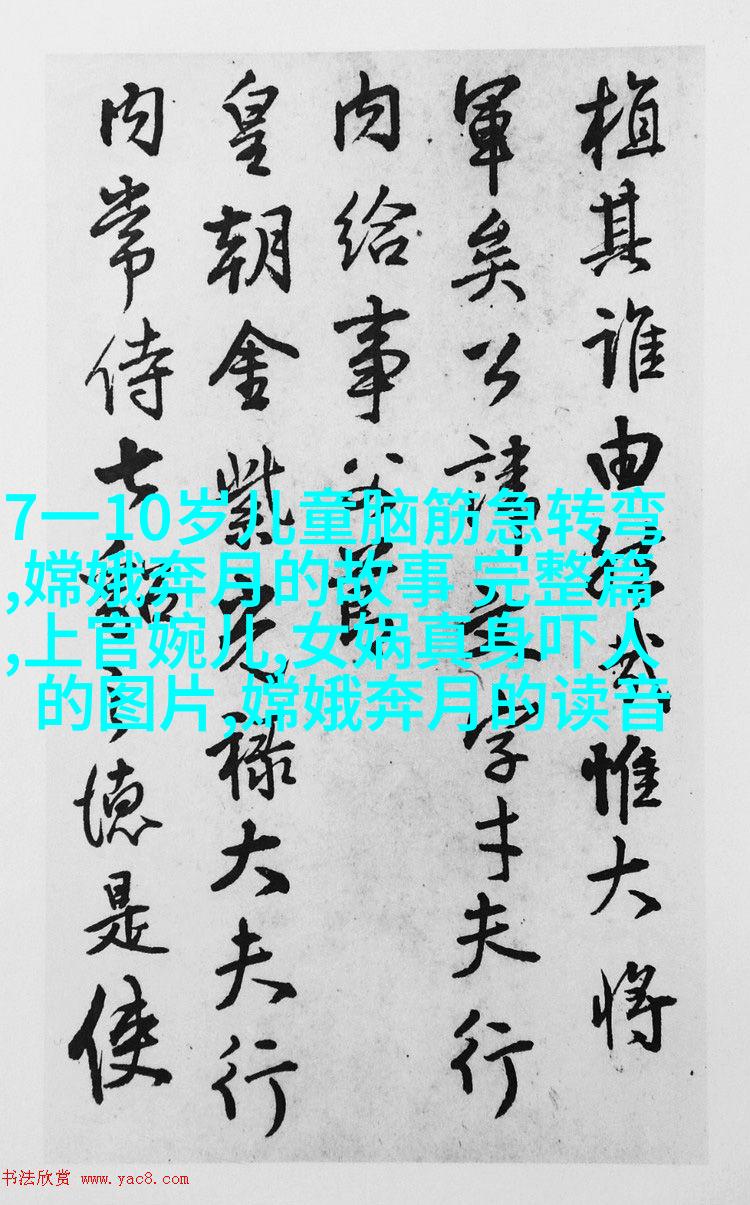 植其誰由武惟大將
軍矣公諱文字才夫行
内給事父
皇朝金紫光祿大夫行
内常侍德是使
7一10岁儿童脑筋急转弯
,嫦娥奔月的故事 完整篇
,上官婉儿,女娲真身吓人
的图片,嫦娥奔月的读音
书法欣赏 www.yac8.com